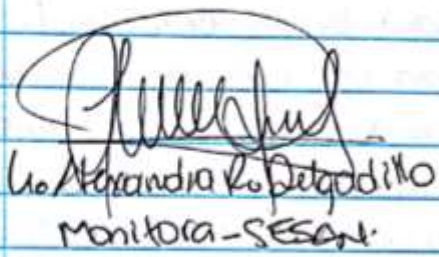 Lic. Alexandra R. Delgadillo
Monitora-SESAN.